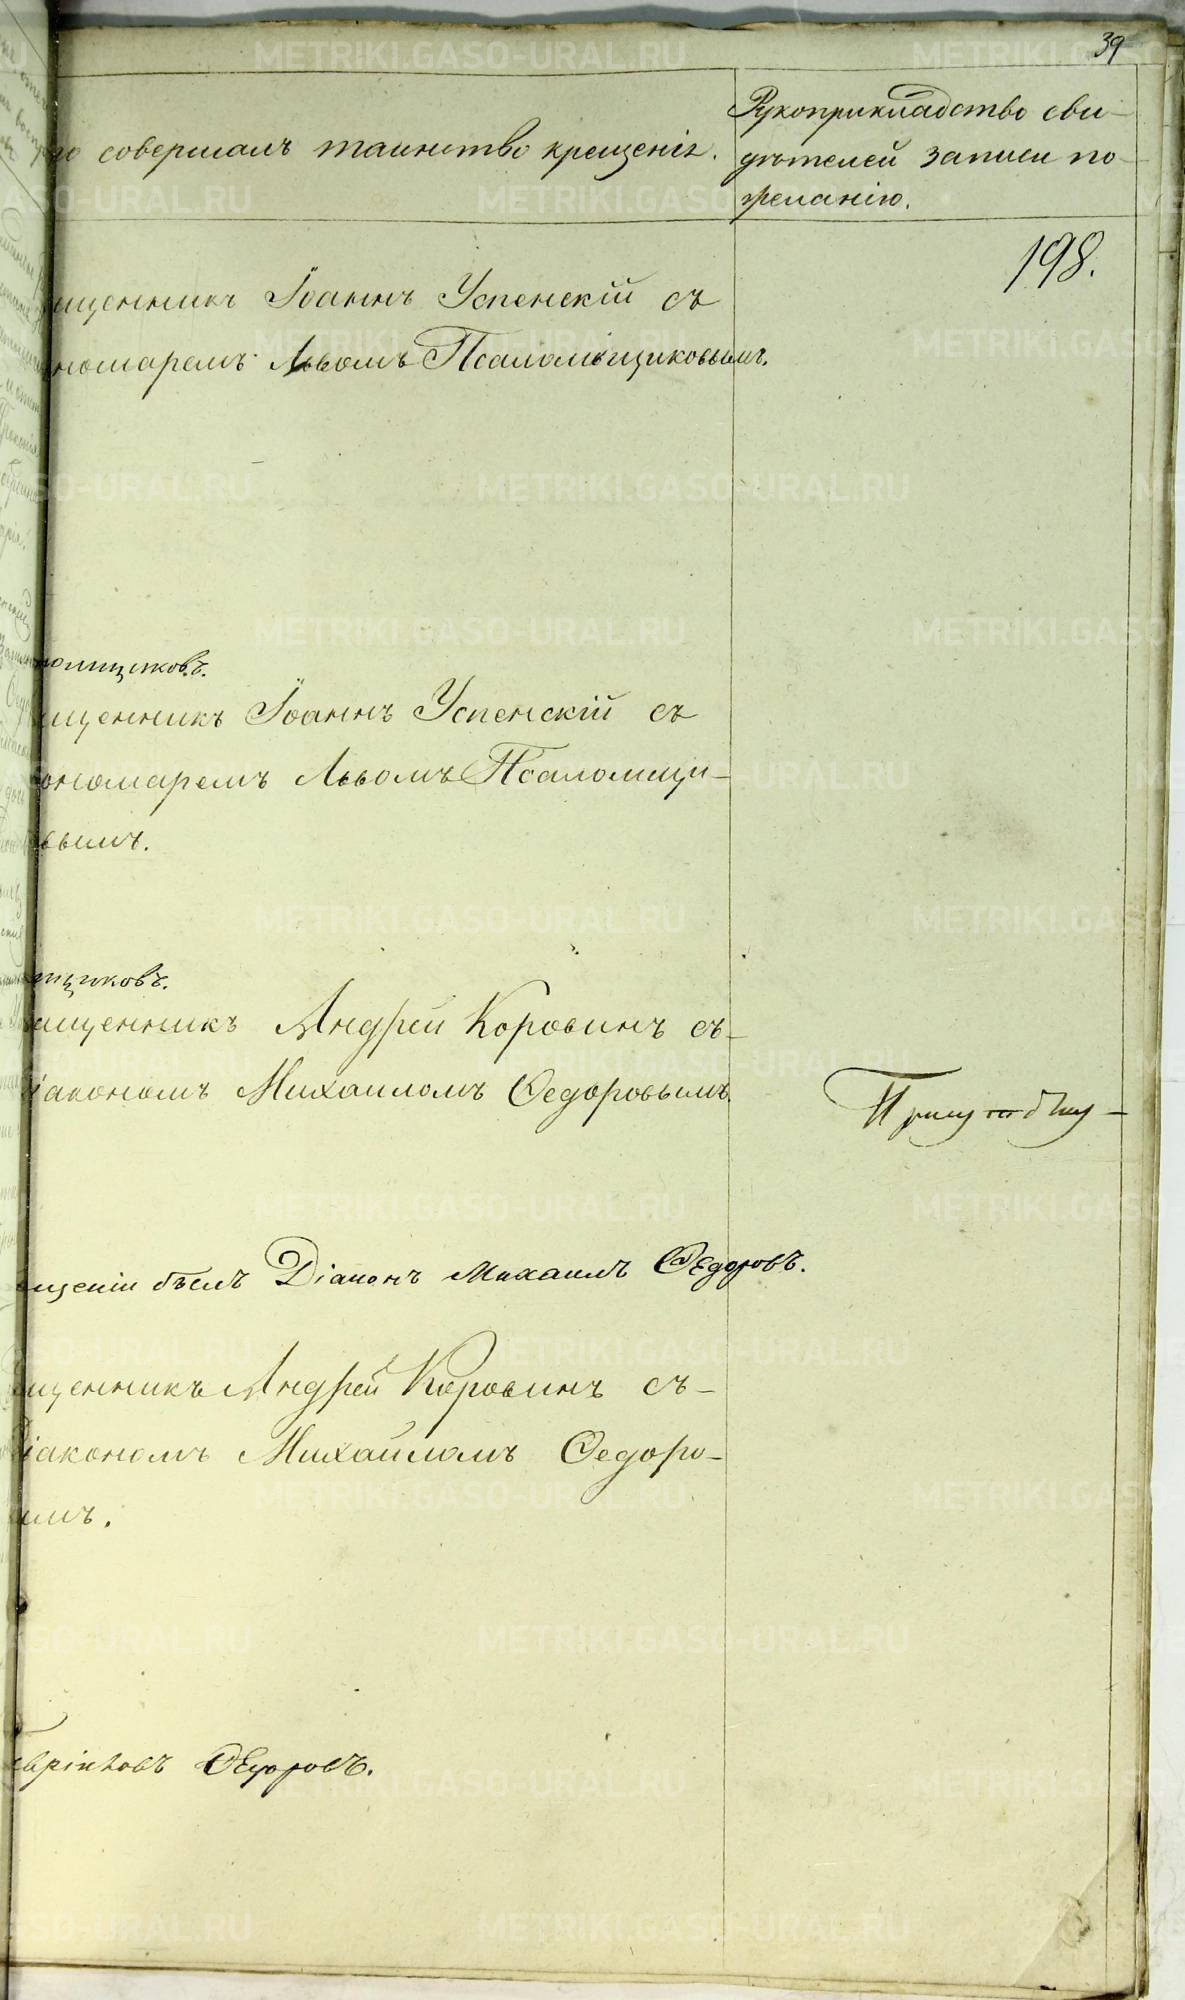 39
то совершалъ таинство крещенія.
Рукоприкладство сви-
дѣтелей записи по
желанію.
198.
щенникъ Іоаннъ Успенскій съ
номаремъ Львомъ Псаломьщиковымъ.
омщиковъ.
щенникъ Іоаннъ Успенскій съ
ономаремъ Львомъ Псаломщи-
вымъ.
щиковъ.
ященникъ Андрей Коровинъ съ-
іакономъ Михаиломъ Ѳедоровымъ.
ещеніи былъ Діаконъ Михаилъ Ѳедоровъ.
щенникъ Андрей Коровинъ съ-
іакономъ Михайломъ Ѳедоро-
ымъ.
Ѳедоровъ.
METRIKI.GASO-URAL.RU